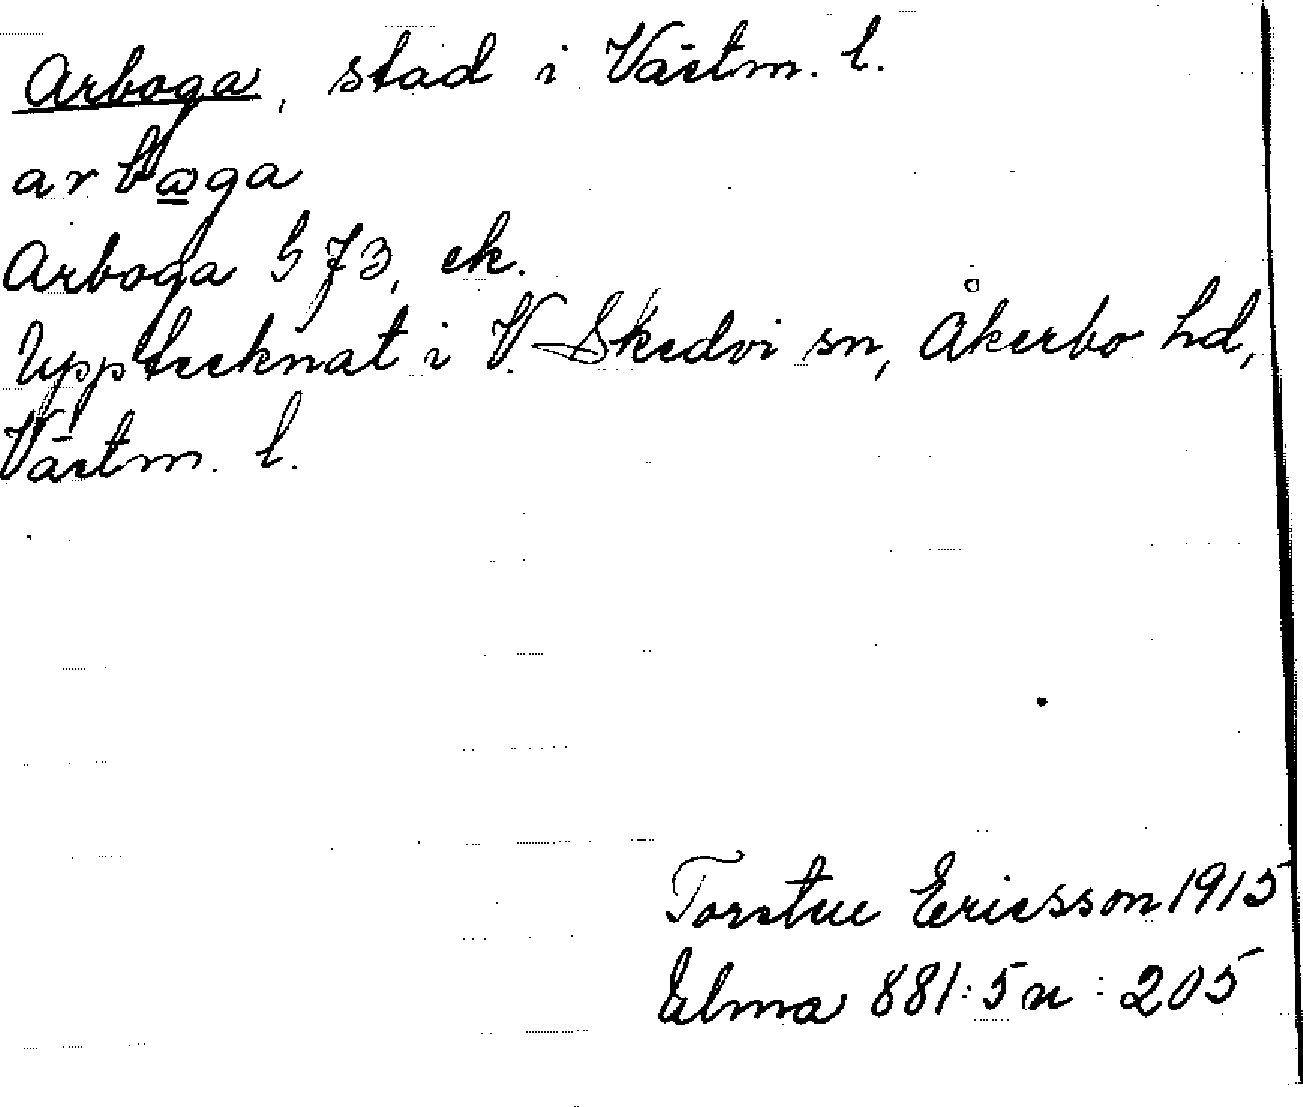 Arboga, stad i Västm. l.
arbωga
Arboga S 73, ek.
Upptecknat i V. Skedvi sn, Åkerbo hd,
Västm. l.
Torsten Ericsson 1915
Elma 881:5 n : 205